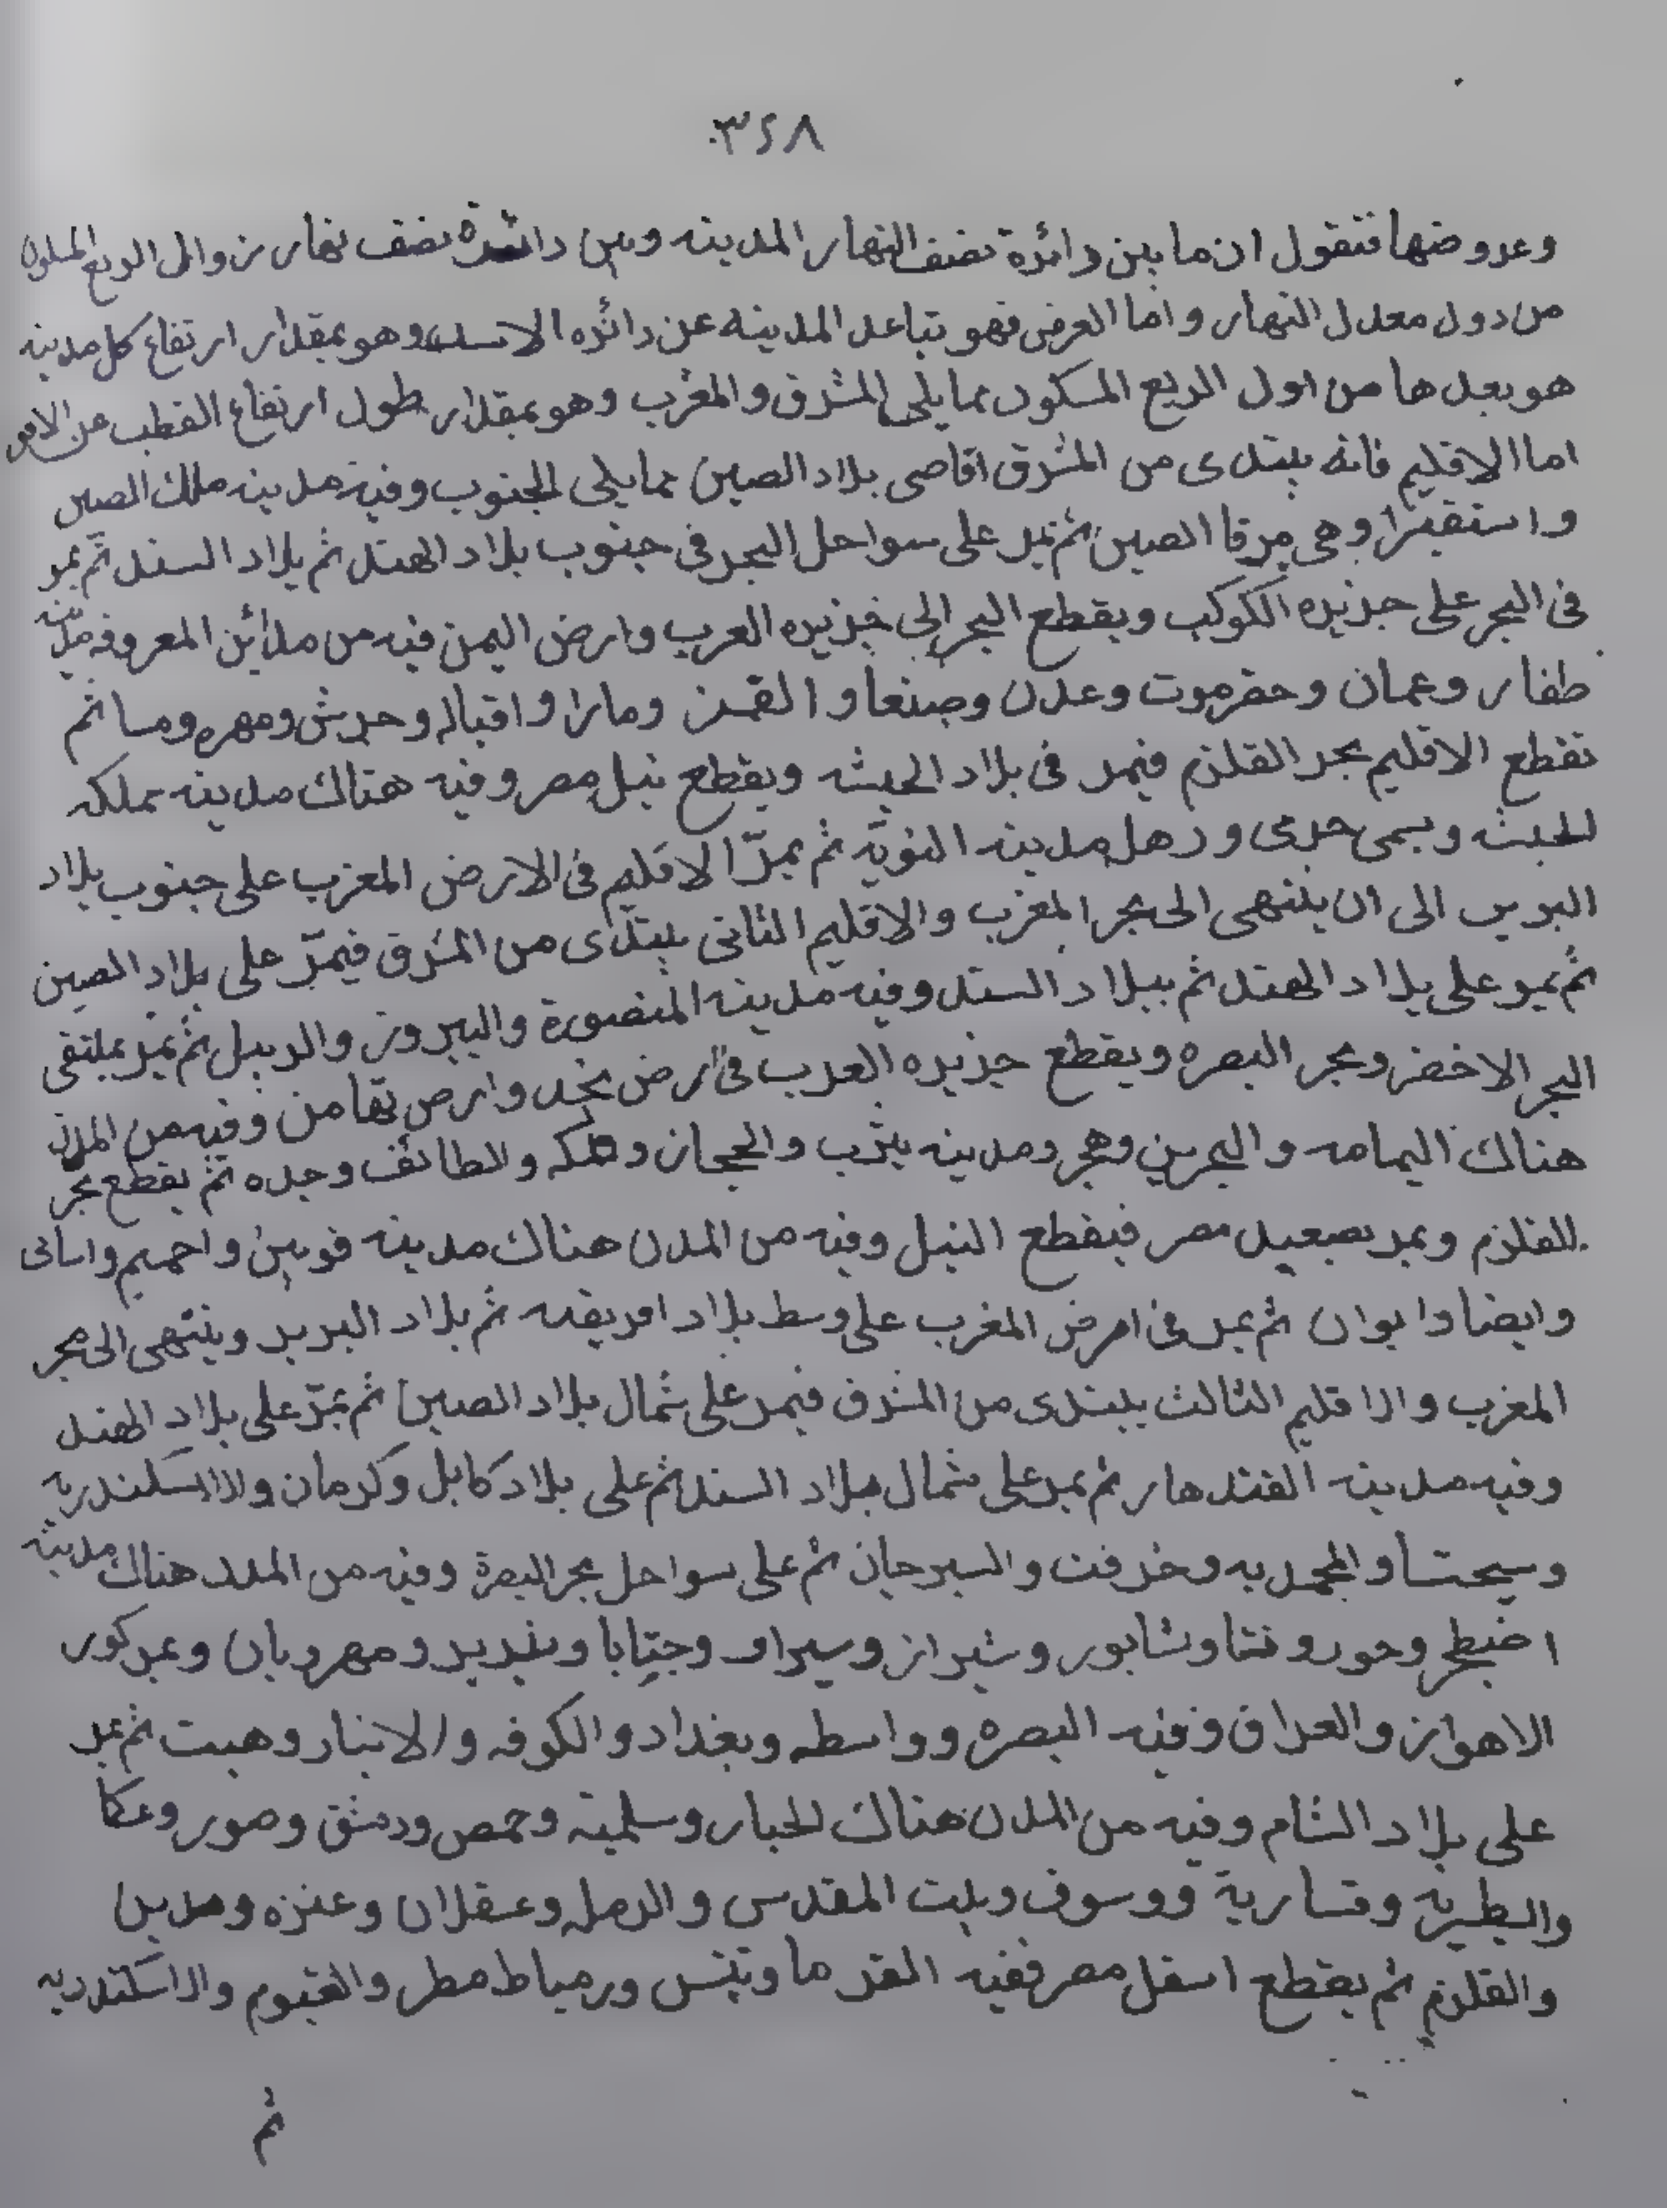 ٣٢٨
وعروضها فنقول ان ما بين دائرة نصف النهار المدينه وبين دائرة نصف نهار من والى الربع المكون
من دول معدل النهار واما العرض فهو تباعد المدينه عن دائره وهو بمقدار ارتفاع كل مدينه
هو بعدها من اول الربع المسكون مما يلى المشرق والمغرب وهو بمقدار طول ارتفاع القطب عن الافق
اما الاقليم فانه يبتدى من المشرق اقاصى بلاد الصين مما يلى الجنوب وفيه مدينه ملك الصين
واستقيرا وهى مرقا الصين ثم تمر على سواحل البحر فى جنوب بلاد الهند ثم بلاد السند ثم يمر
فى البحر على جزيره الكوكب ويقطع البحر الى جزيره العرب وارض اليمن فيه من مدائن المعروفه مدينه
طفار وعمان وحضرموت وعدن وصنعا و ومارا واقباله وحرش ومهره وسا ثم
تقطع الاقليم بحر القلزم فيمر فى بلاد الحبشه ويقطع نيل مصر وفيه هناك مدينه مملكه
الحبشه ويسمى حرمى ودهل مدينه النوبّة ثم يمرّ الاقليم فى الارض المغرب على جنوب بلاد
البربر الى ان ينتهى الى بحر المغرب والاقليم الثانى يبتدى من المشرق فيمرّ على بلاد الصين
ثم يمر على بلاد الهند ثم ببلاد السند وفيه مدينه المنصورة والبيروز والديبل ثم يمر بملتقى
البحر الاخضر وبحر البصره ويقطع جزيره العرب فى ارض نجد وارض تهامن وفيه من المدن
هناك اليمامه والبحرين وهجر ومدينه يثرب والحجاز ومكه والطائف وجده ثم يقطع بحر
القلزم ويمر بصعيد مصر فيقطع النيل وفيه من المدن هناك مدينه قوبين واحميم واسانى
وايضا وابوان ثم يمر فى ارض المغرب على وسط بلاد افريقه ثم بلاد البربر وينتهى الى بحر
المغرب والاقليم الثالث يبتدى من المشرق فيمر على شمال بلاد الصين ثم يمرّ على بلاد الهند
وفيه مدينه القندهار ثم يمر على شمال بلاد السند ثم على بلاد كابل وكرمان والاسكندريه
وسيحتا والمحمديه وخرفت والسيرجان ثم على سواحل بحر البصرة وفيه من المدن هناك مدينه
اصطخر وجور وفتا وشابور وشيراز وسيراف وجتابا وينديد ومهروبان ويمر كور
الاهواز والعراق وفيه البصره وواسطه وبغداد والكوفه والانبار وهيت ثم يمر
على بلاد الشام وفيه من المدن هناك الحبار وسلمية وحمص ودمشق وصور وعكا
والبطيريه وقسارية ووسوف وبيت المقدس والرمله وعسقلان وعنزه ومدين
والقلزم ثم يقطع اسفل مصر ففيه الفرما وتنس ودمياط مطر والفيوم والاسكندريه
ثم